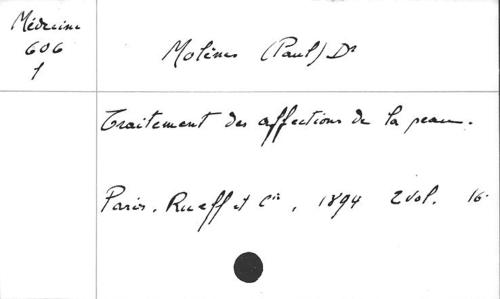 Médecine
606
1
Molènes (Paul) Dr
Traitement des affections de la peau.
Paris. Rueff et Cie, 1894 2 vol. 16.